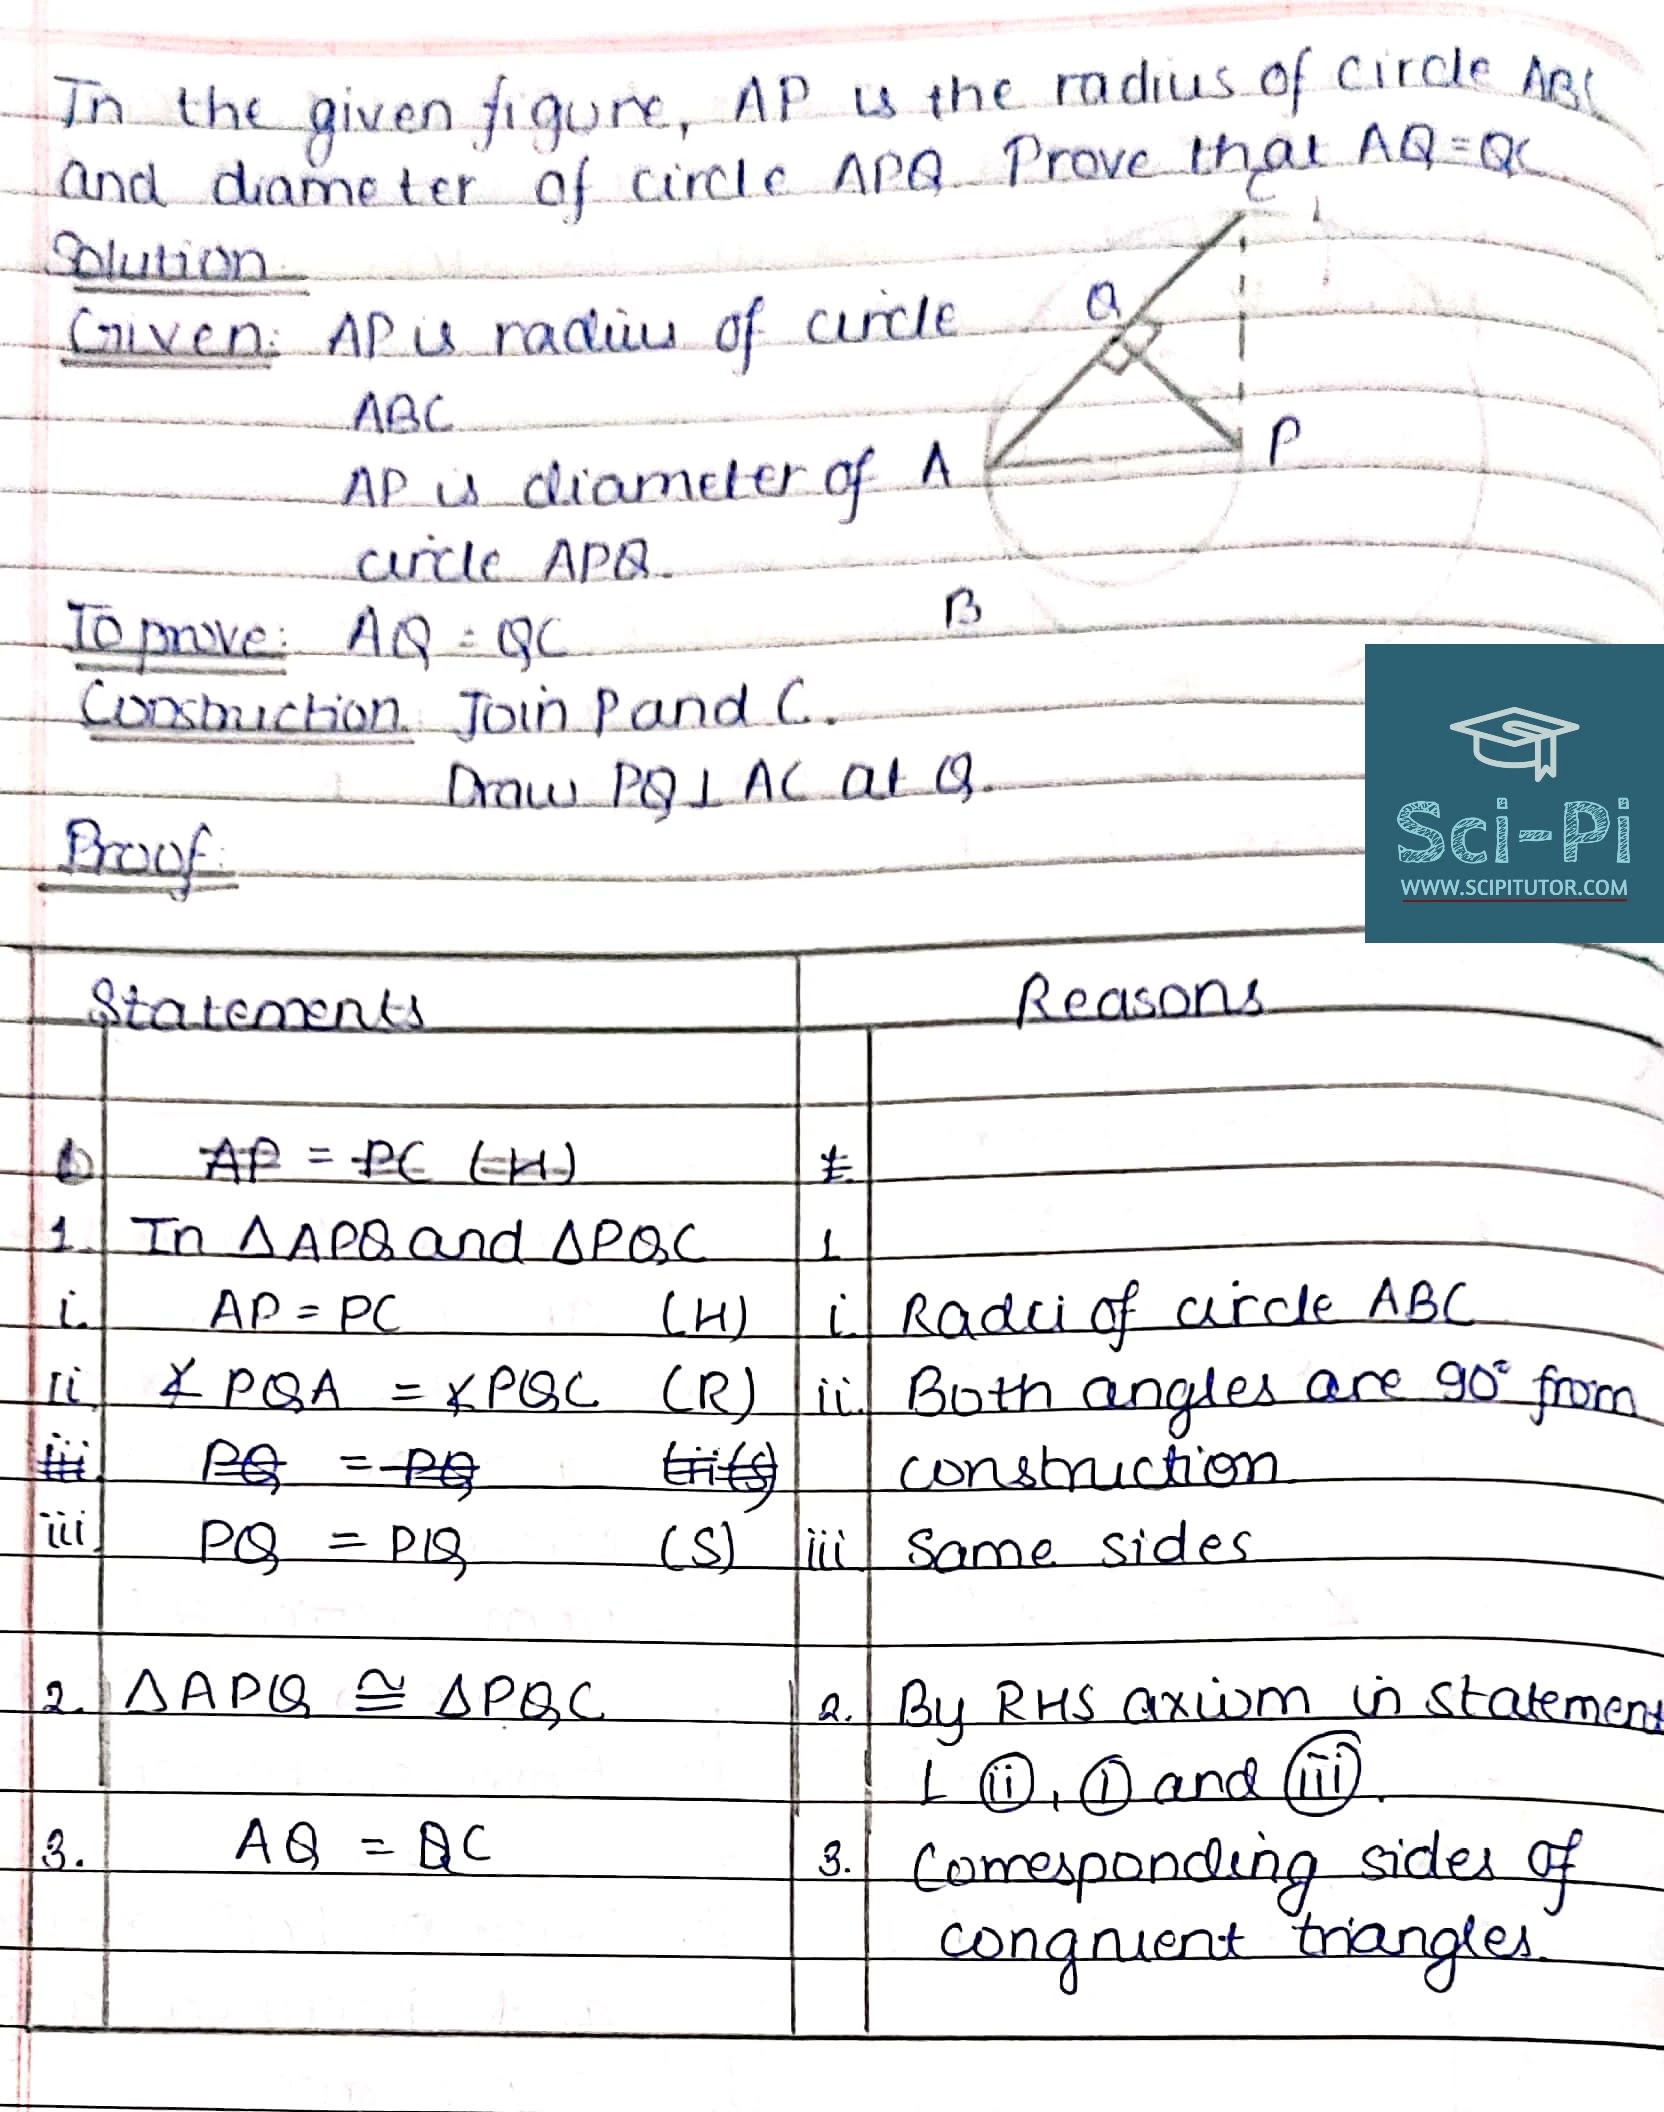 In the given figure, AP is the radius of circle ABC
and diameter of circle APQ. Prove that AQ=QC
Solution
C
Given: AP is radius of circle
Q
ABC
AP is diameter of
A
P
circle APQ.
B
To prove: AQ = QC
Construction. Join P and C.
Draw PQ⊥AC at Q.
Proof:
Sci-Pi
WWW.SCIPITUTOR.COM
Statements Reasons
AP = PC (H)
1. In ΔAPQ and ΔPQC 1
i. AP = PC (H) i. Radii of circle ABC
ii. ∡PQA = ∡PQC (R) ii. Both angles are 90° from
iii PQ = PQ construction
iii. PQ = PQ (S) iii Same sides
2. ΔAPQ ≅ ΔPQC 2. By RHS axiom in statement
1 (ii), (i) and (iii).
3. AQ = QC 3. Corresponding sides of
congruent triangles.